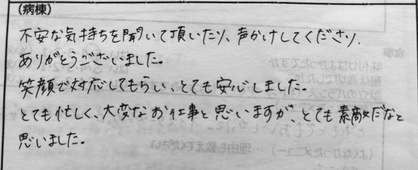 (病棟)
不安な気持ちを聞いて頂いたり、声かけしてくださり、
ありがとうございました。
笑顔で対応してもらい、とても安心しました。
とても忙しく、大変なお仕事と思いますが、とても素敵だなと
思いました。